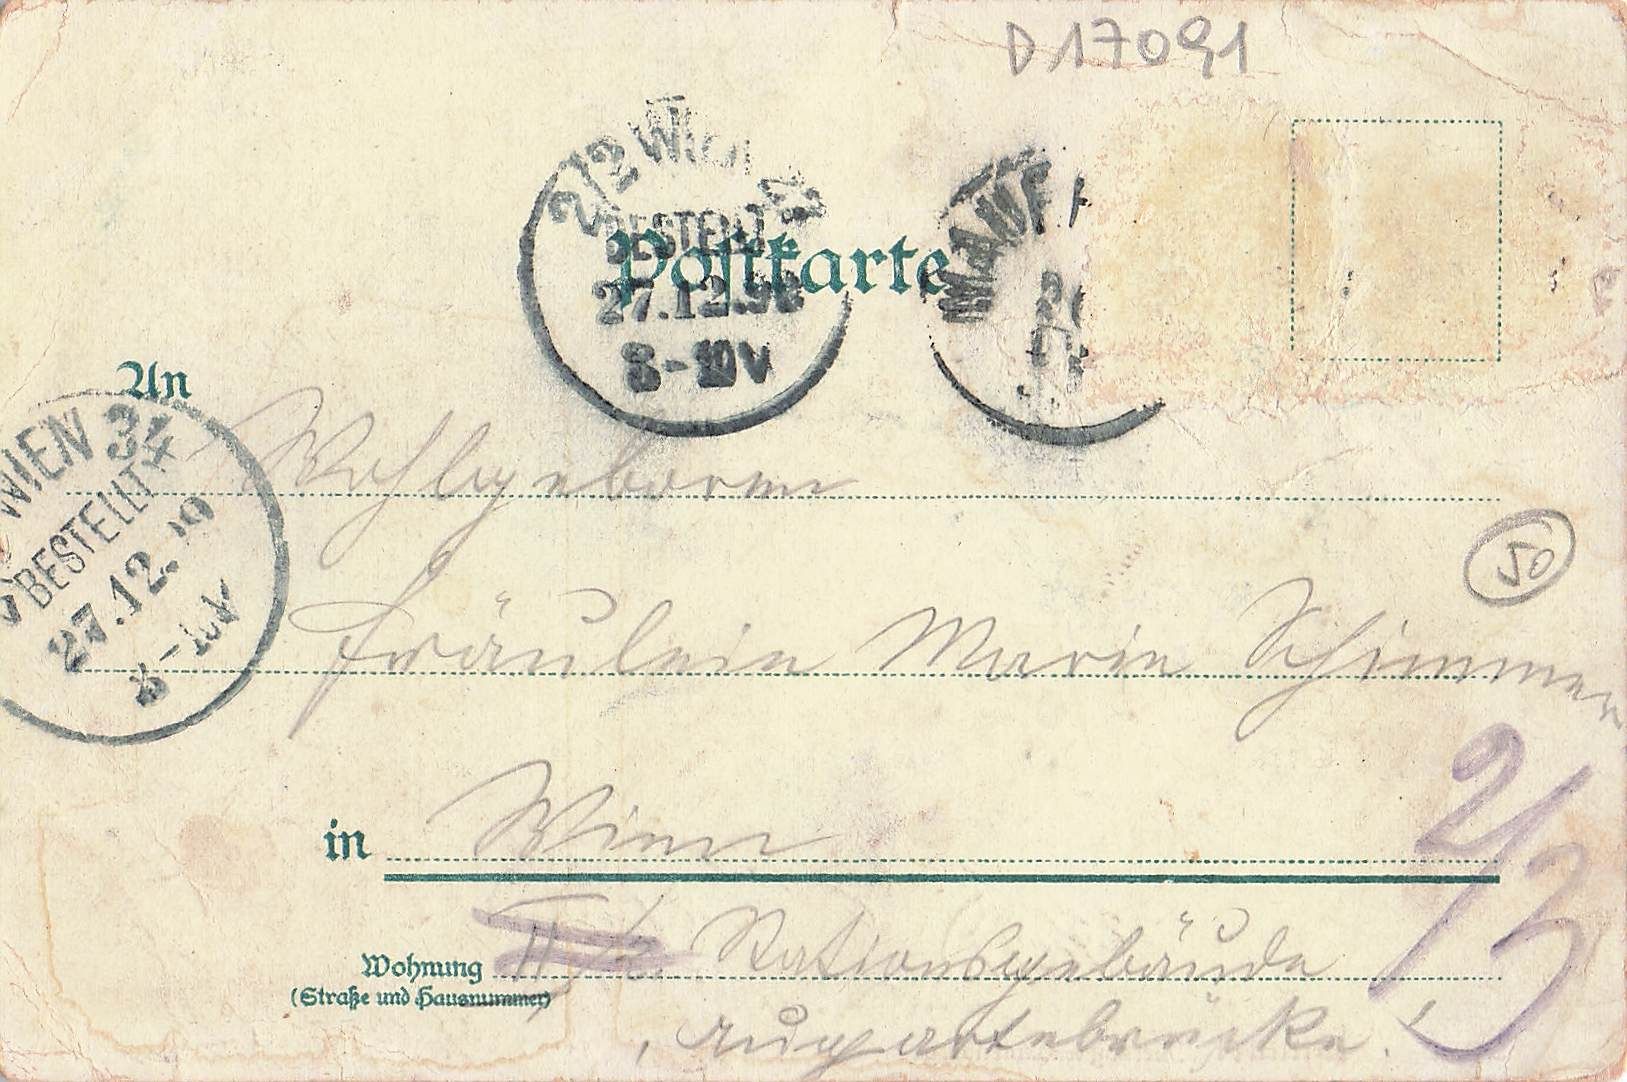 D 17091
2/2 WIEN
BESTELLT
27.12.98
8-10V
MAUE
Postkarte
An
WIEN 34
BESTELLT
27.12.
8-10V
Wohlgeboren
50
Fräulein Marie Schimmer
in Wien
2/3
Wohnung II/2 Stationsgebäude
(Straße und Hausnummer)
, Augartebrücke.